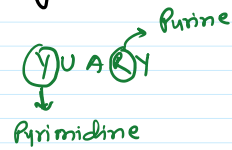 Purine
YUARY
Pyrimidine